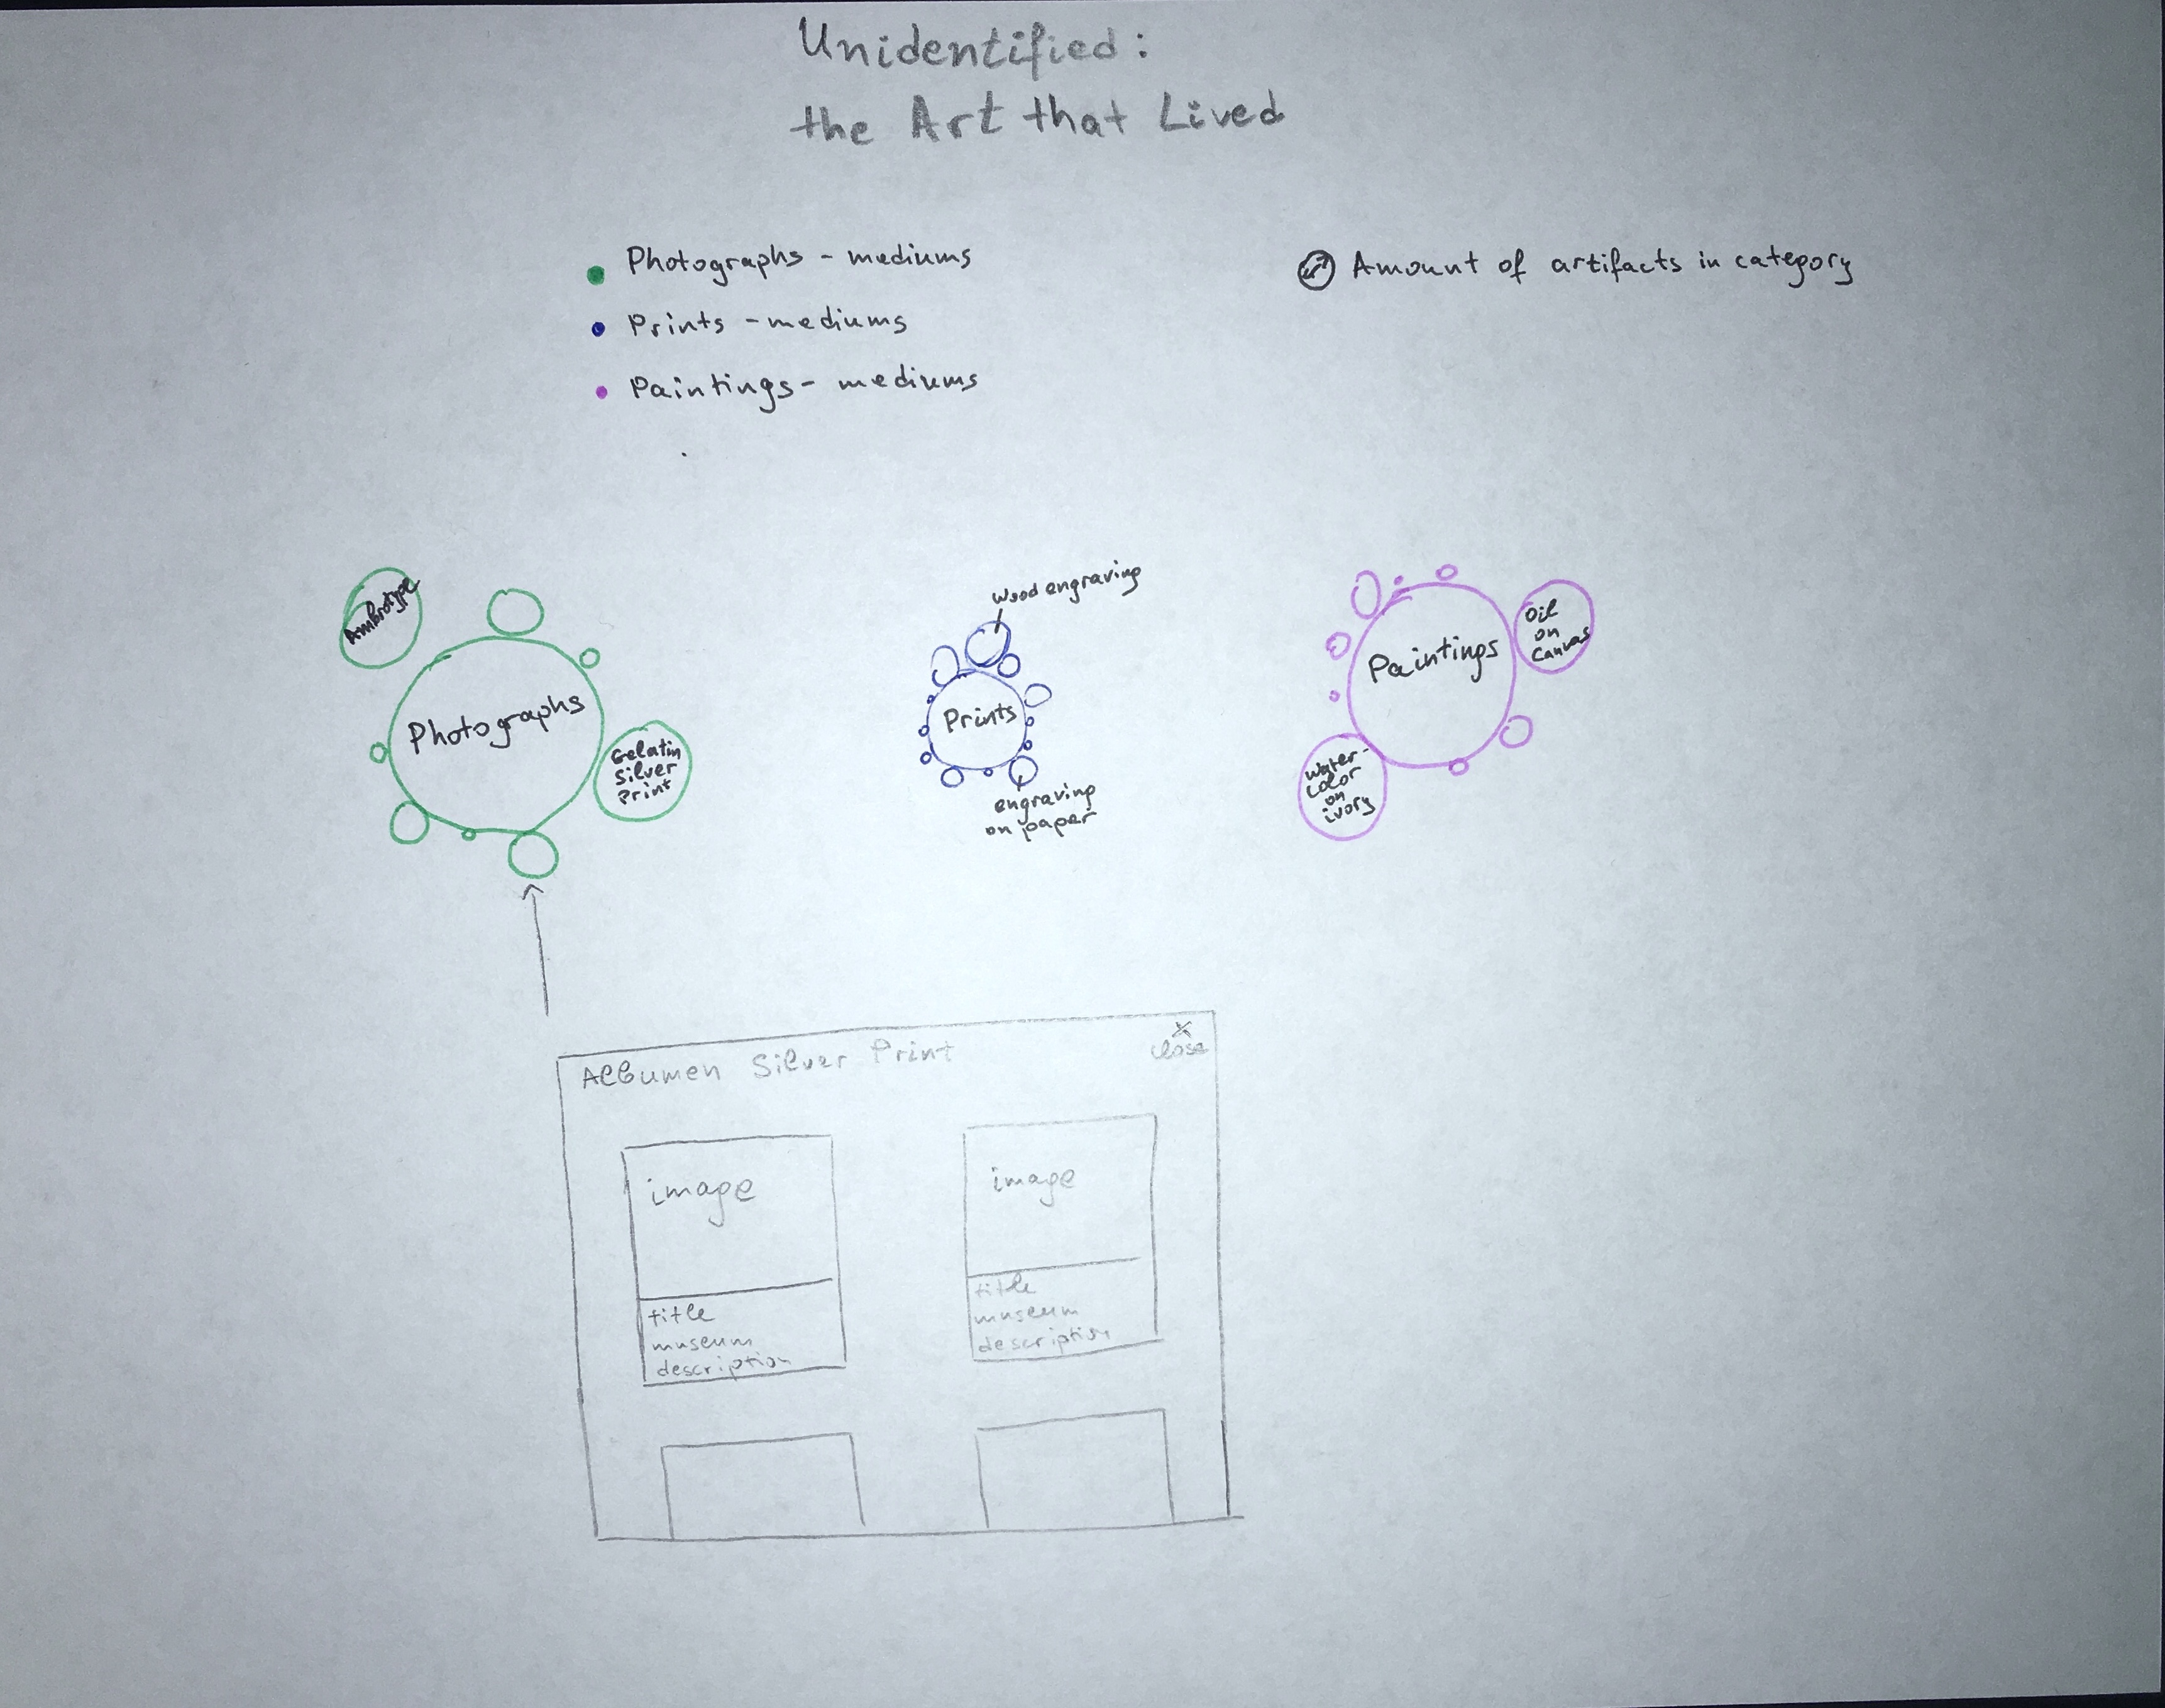 Unidentified:
the Art that Lived
Photographs - mediums
Prints - mediums
Paintings - mediums
Amount of artifacts in category
Ambrotype
Photographs
Gelatin
Silver
Print
wood engraving
Prints
engraving
on paper
Paintings
Oil
on
Canvas
Water-
color
on
ivory
Albumen Silver Print
X
close
image
title
museum
description
image
title
museum
description